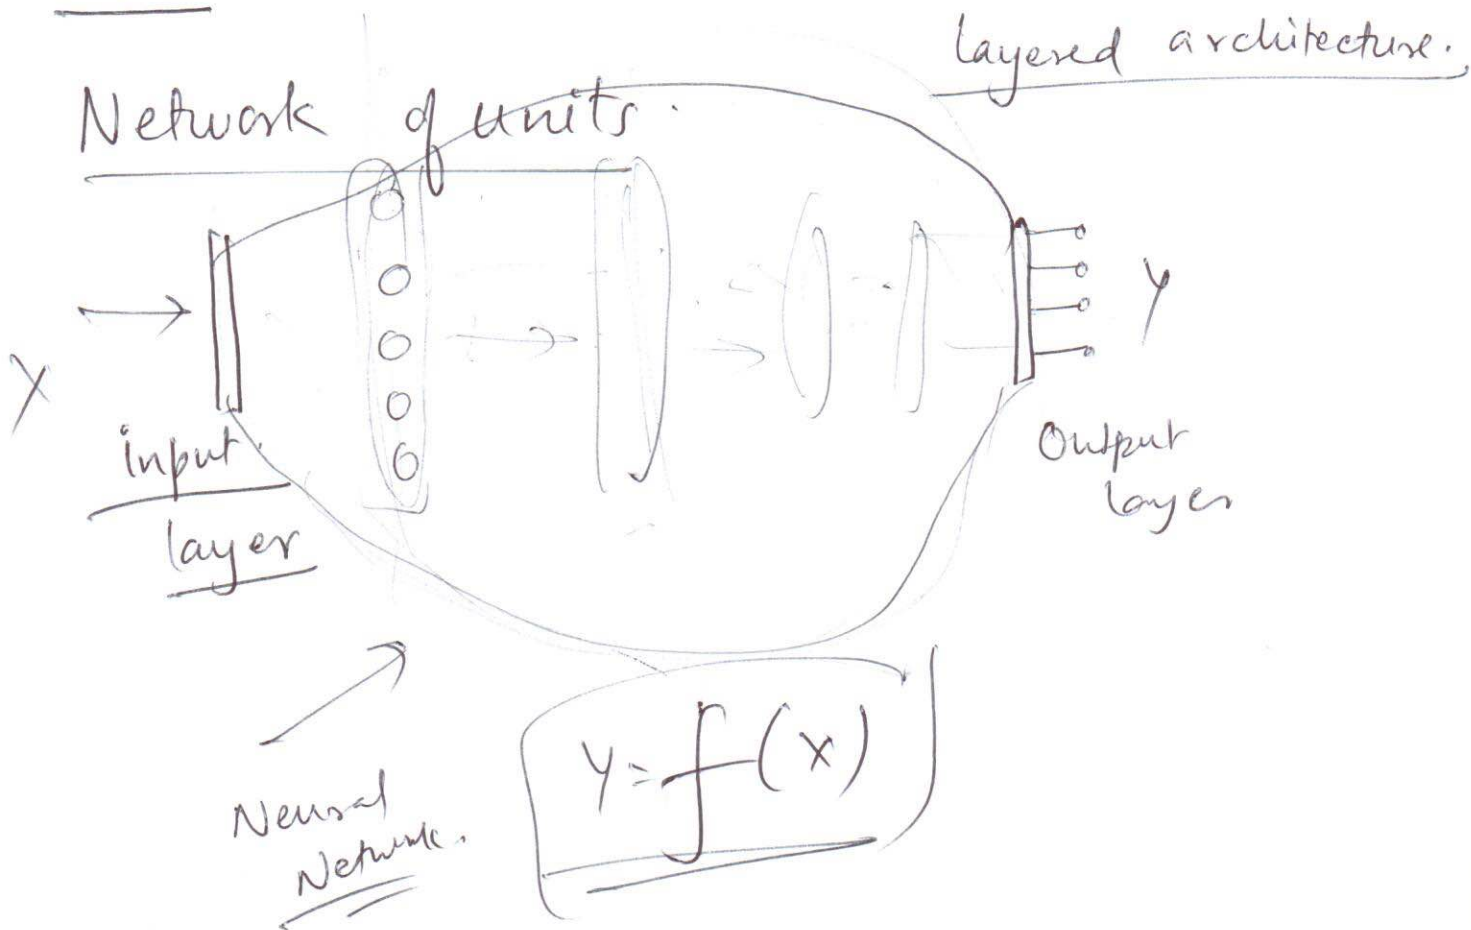 layered architecture.
Network of units.
X
Y
input
layer
Output
layer
Neural
Network.
Y = f(X)